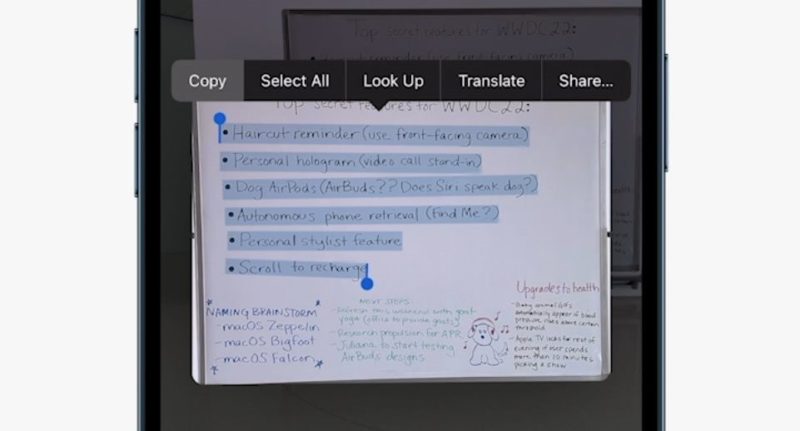 Top secret features for WWDC22:
reminder (use front-facing camera)
Copy Select All Look Up Translate Share...
Top secret features for WWDC22:
• Haircut reminder (use front-facing camera)
• Personal hologram (video call stand-in)
• Dog AirPods (AirBuds?? Does Siri speak dog?)
• Autonomous phone retrieval (Find Me?)
• Personal stylist feature
• Scroll to recharge
NAMING BRAINSTORM
- macOS Zeppelin
- macOS Bigfoot
- macOS Falcon
NEXT STEPS
- weekend with goat
yoga (office to provide goats)
- Research propulsion for APR
- Juliana to start testing
AirBuds designs
Upgrades to health
- Baby animal GIFs
automatically appear if blood
pressure rises above certain
threshold
- Apple TV locks for rest of
evening if user spends
more than 10 minutes
picking a show